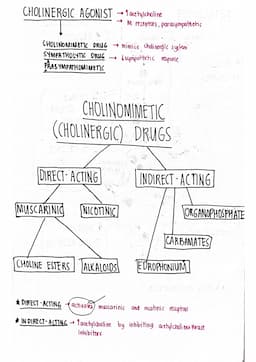 CHOLINERGIC AGONIST → ↑ acetylcholine
→ M receptors, parasympathetic
CHOLINOMIMETIC DRUG → mimic cholinergic system
SYMPATHOLYTIC DRUG → ↓ sympathetic response
PARASYMPATHOMIMETIC
CHOLINOMIMETIC
(CHOLINERGIC) DRUGS
DIRECT-ACTING
INDIRECT-ACTING
MUSCARINIC
NICOTINIC
ORGANOPHOSPHATE
CARBAMATES
CHOLINE ESTERS
ALKALOIDS
EDROPHONIUM
* DIRECT-ACTING → muscarinic and receptor
* INDIRECT-ACTING → ↑ acetylcholine by inhibiting
inhibitors